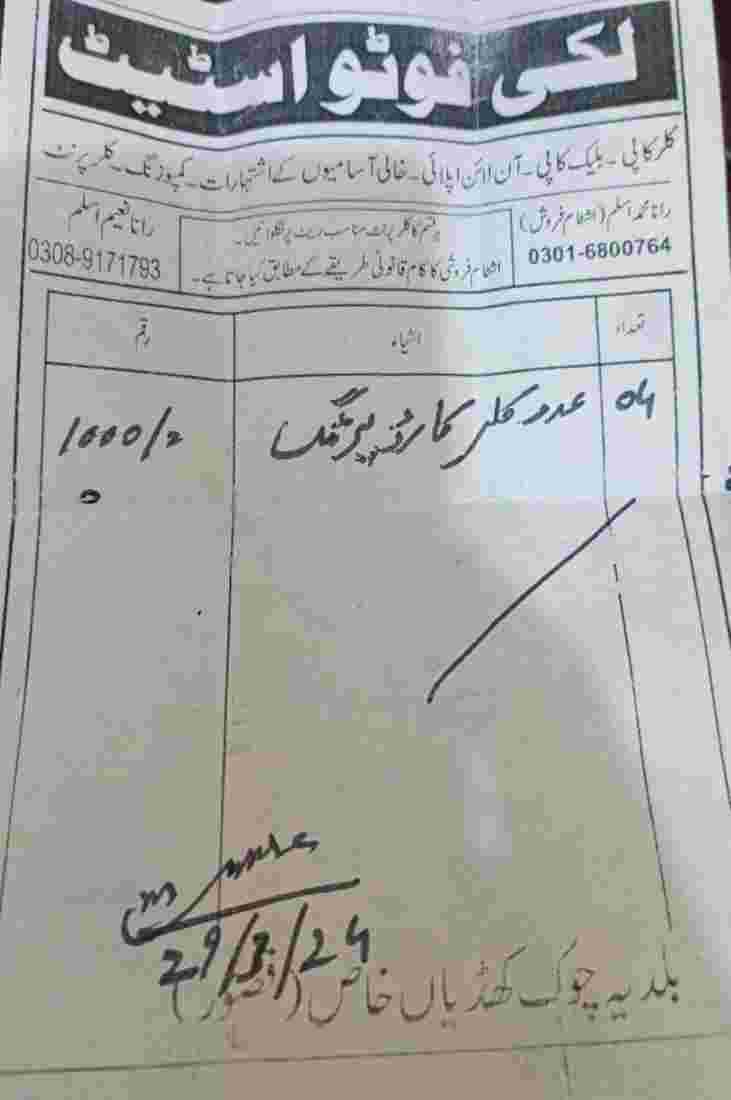 لکی فوٹو اسٹیٹ
کلر کاپی۔ بلیک کاپی۔ آن لائن اپلائی۔ خالی آسامیوں کے اشتہارات۔ کمپوزنگ۔ کلر پرنٹ
رانا محمد اسلم (اشٹام فروش)
0301-6800764
ہر قسم کا کلر پرنٹ مناسب ریٹ پر نکلوائیں۔
اشٹام فروشی کا کام قانونی طریقے کے مطابق کیا جاتا ہے۔
رانا نعیم اسلم
0308-9171793
تعداد اشیاء رقم
04 عدد کلر کارڈ پرنٹنگ 1000/=
29/3/24
بلدیہ چوک کھڈیاں خاص (قصور)